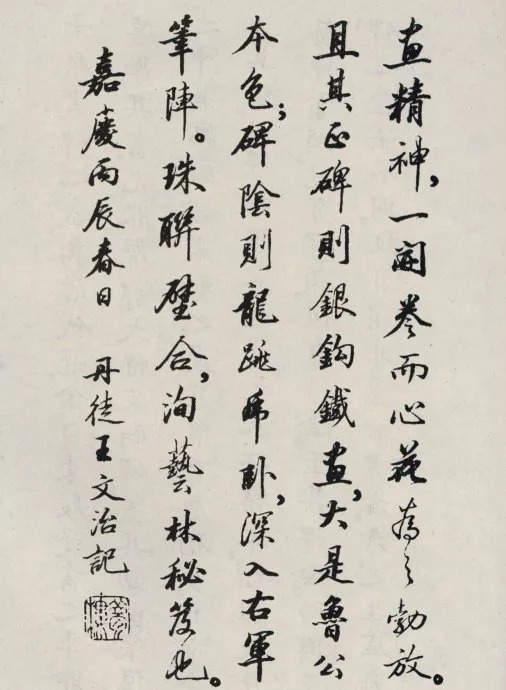 畫精神，一開卷而心花為之勃放。
且其正碑則銀鈎鐵畫，大是魯公
本色；碑陰則龍跳虎卧，深入右軍
筆陣。珠聯璧合，洵藝林秘笈也。
嘉慶丙辰春日 丹徒王文治記